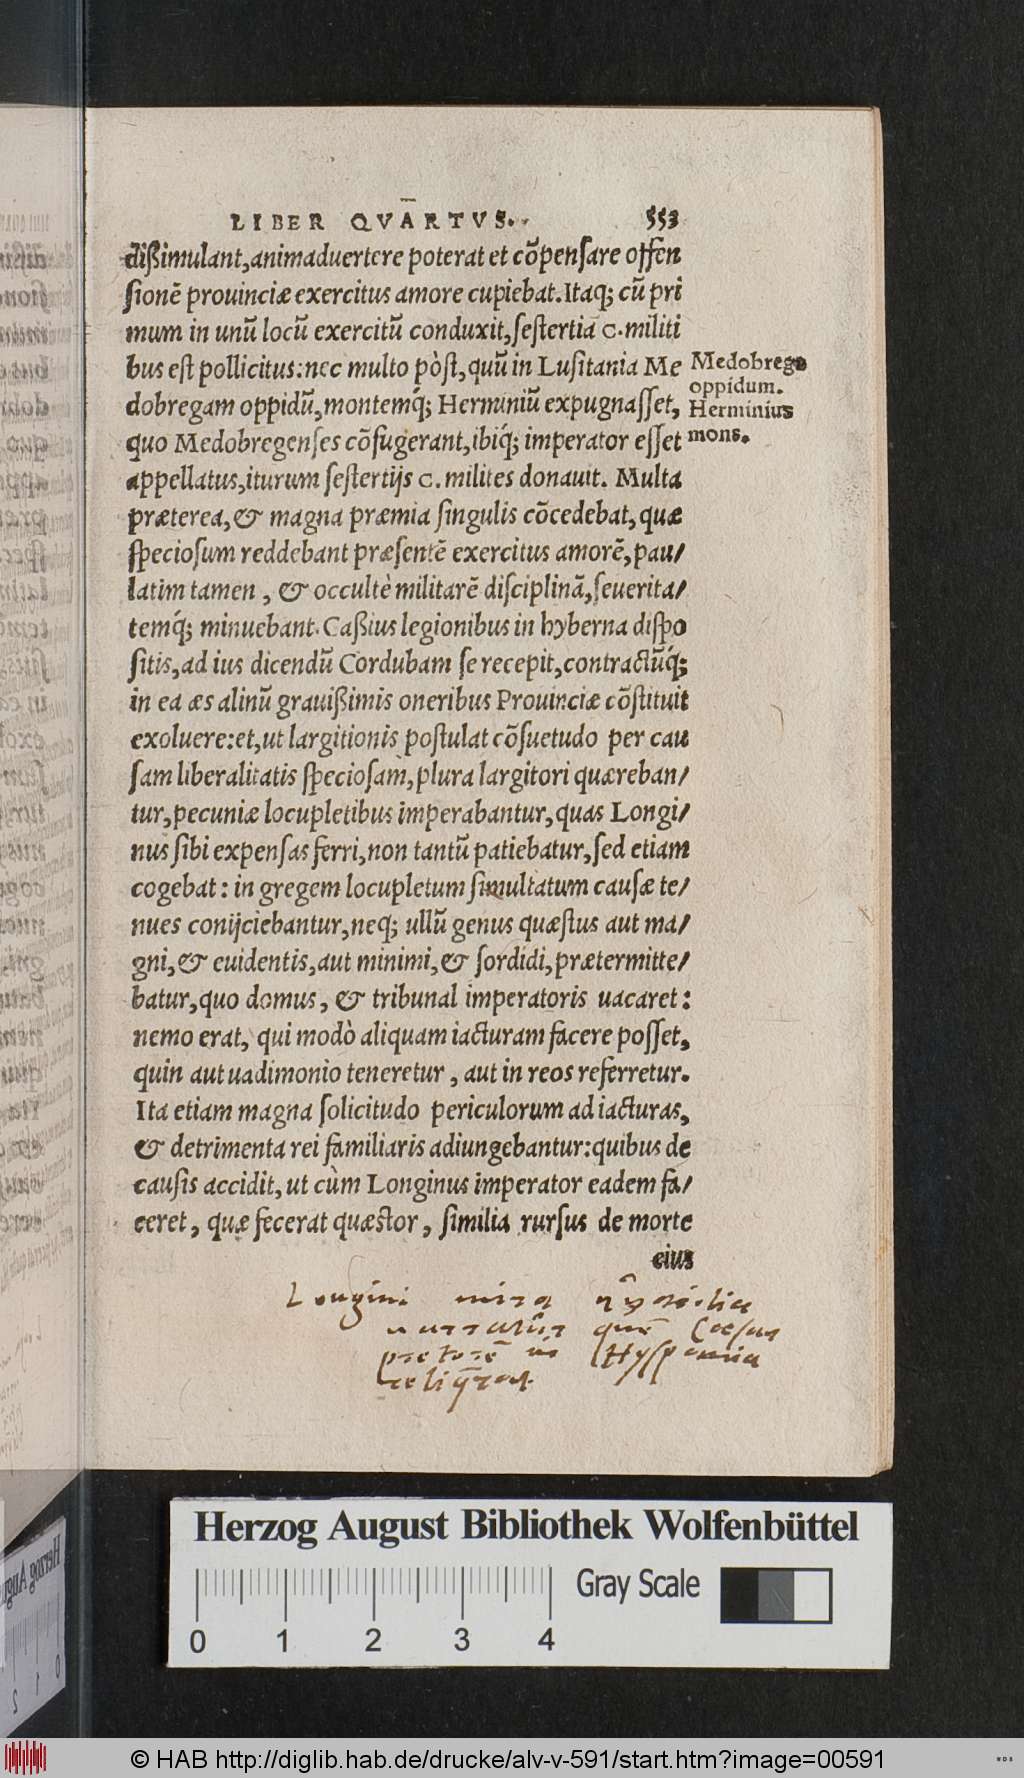 LIBER QVARTVS. 553
dißimulant,animaduertere poterat et cōpensare offen
sionē prouinciæ exercitus amore cupiebat.Itaq; cū pri
mum in unū locū exercitū conduxit,sestertia C. militi
bus est pollicitus:nec multo pòst,quū in Lusitania Me
dobregam oppidū,montemq́; Herminiū expugnasset,
quo Medobregenses cōfugerant,ibiq́; imperator esset
appellatus,iturum sestertijs C. milites donauit. Multa
præterea,& magna præmia singulis cōcedebat,quæ
speciosum reddebant præsentē exercitus amorē,pau/
latim tamen , & occultè militarē disciplinā,seuerita/
temq́; minuebant. Caßius legionibus in hyberna dispo
sitis,ad ius dicendū Cordubam se recepit,contractūq́;
in ea æs alinū grauißimis oneribus Prouinciæ cōstituit
exoluere:et,ut largitionis postulat cōsuetudo per cau
sam liberalitatis speciosam,plura largitori quæreban/
tur,pecuniæ locupletibus imperabantur,quas Longi/
nus sibi expensas ferri,non tantū patiebatur,sed etiam
cogebat : in gregem locupletum simultatum causæ te/
nues conijciebantur,neq; ullū genus quæstus aut ma/
gni,& euidentis,aut minimi,& sordidi,prætermitte/
batur,quo domus , & tribunal imperatoris uacaret :
nemo erat, qui modò aliquam iacturam facere posset,
quin aut uadimonio teneretur , aut in reos referretur.
Ita etiam magna solicitudo periculorum ad iacturas,
& detrimenta rei familiaris adiungebantur:quibus de
causis accidit, ut cùm Longinus imperator eadem fa/
ceret , quæ fecerat quæstor , similia rursus de morte
eius
Medobrega
oppidum.
Herminius
mons.
Longini mira
narratur quē Caesar
pretorē in Hyspania
reliq̄rat.
Herzog August Bibliothek Wolfenbüttel
Gray Scale
0 1 2 3 4
© HAB http://diglib.hab.de/drucke/alv-v-591/start.htm?image=00591